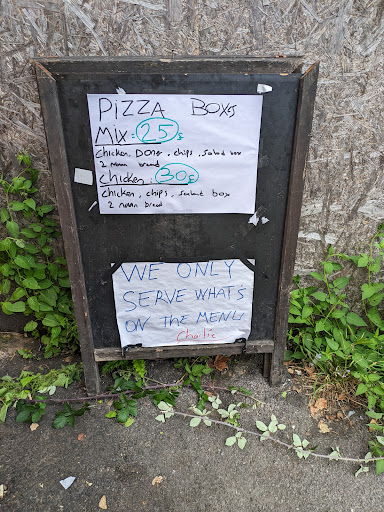 PIZZA BOXES
MIX : 25 £
chicken, Doner, chips, Salad box
2 naan bread
chicken : 30 £
chicken, chips, salad box
2 naan bread
WE ONLY
SERVE WHAT'S
ON THE MENU
Charlie